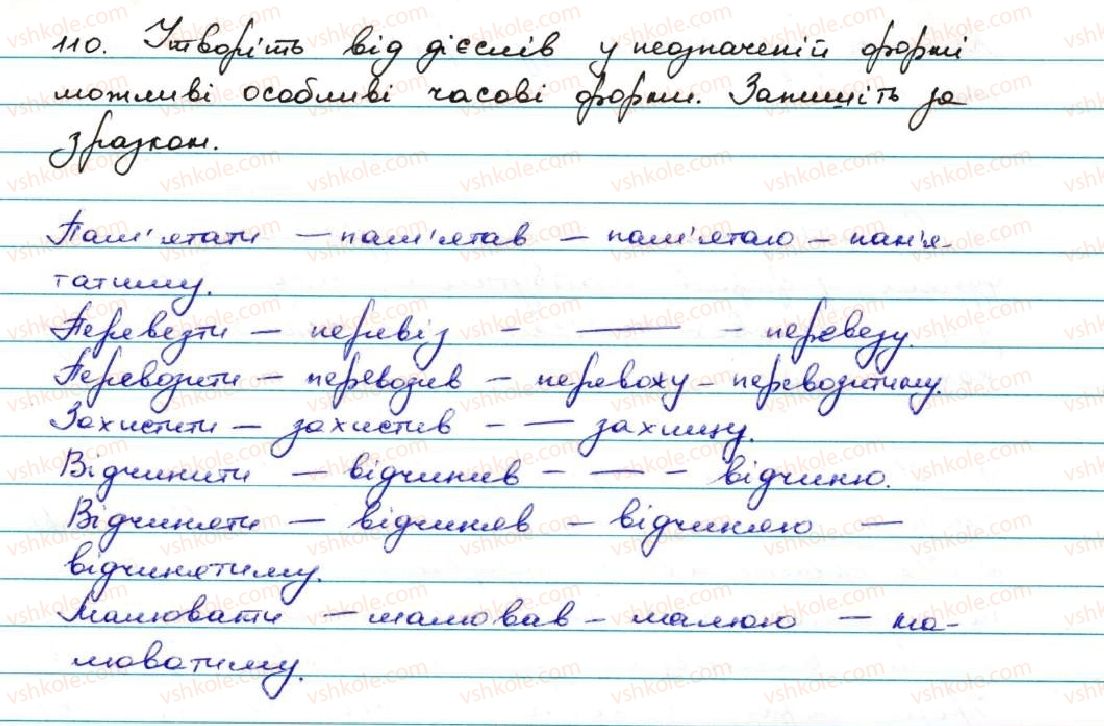 110. Утворіть від дієслів у неозначеній формі
можливі особливі часові форми. Запишіть за
зразком.
Пам'ятати – пам'ятав – пам'ятаю – пам'я-
татиму.
Перевезти – перевіз - — - перевезу.
Перевозити – перевозив – перевожу – перевозитиму.
Захистити – захистив - — захищу.
Відчинити – відчинив - — - відчиню.
Відчиняти – відчиняв – відчиняю –
відчинятиму.
Малювати – малював – малюю – ма-
люватиму.